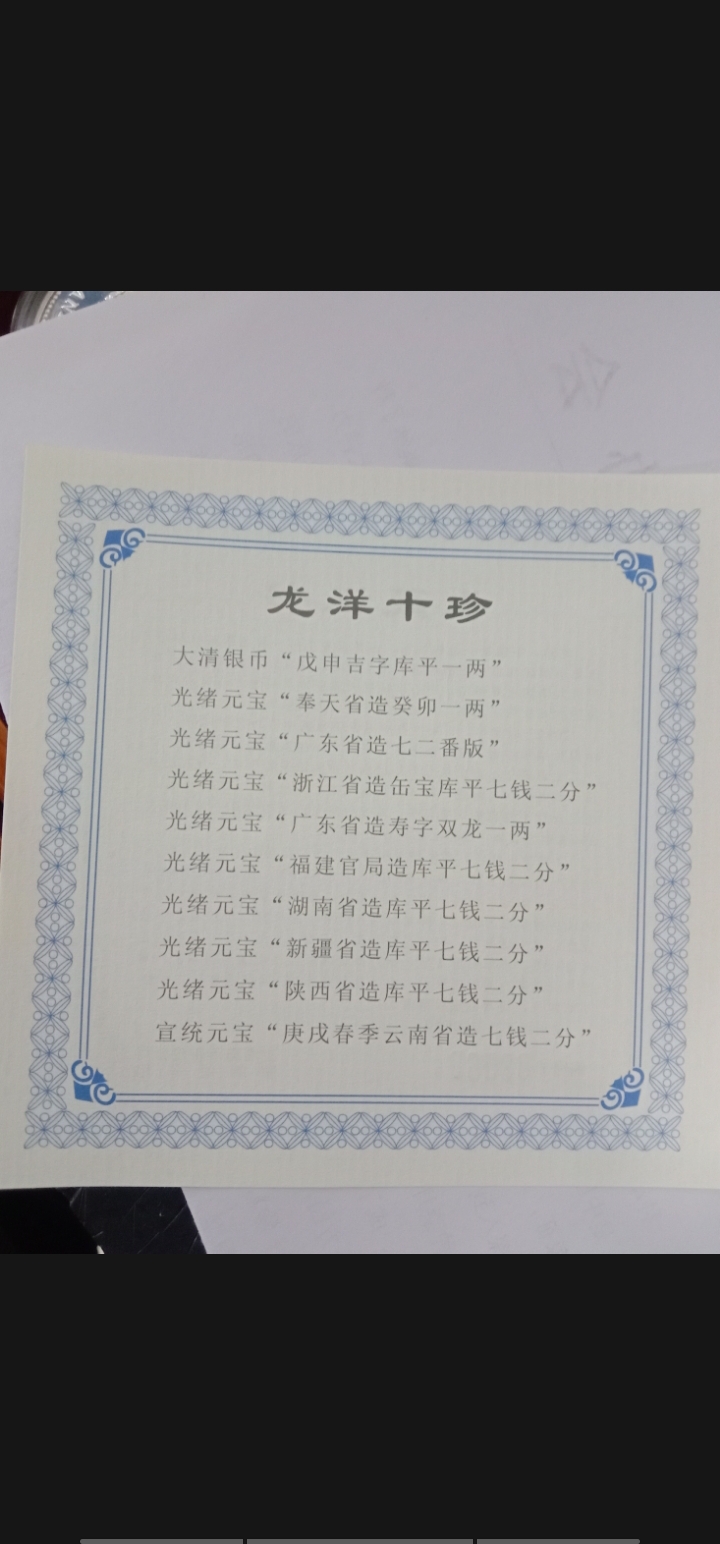 龙洋十珍
大清银币“戊申吉字库平一两”
光绪元宝“奉天省造癸卯一两”
光绪元宝“广东省造七二番版”
光绪元宝“浙江省造缶宝库平七钱二分”
光绪元宝“广东省造寿字双龙一两”
光绪元宝“福建官局造库平七钱二分”
光绪元宝“湖南省造库平七钱二分”
光绪元宝“新疆省造库平七钱二分”
光绪元宝“陕西省造库平七钱二分”
宣统元宝“庚戌春季云南省造七钱二分”